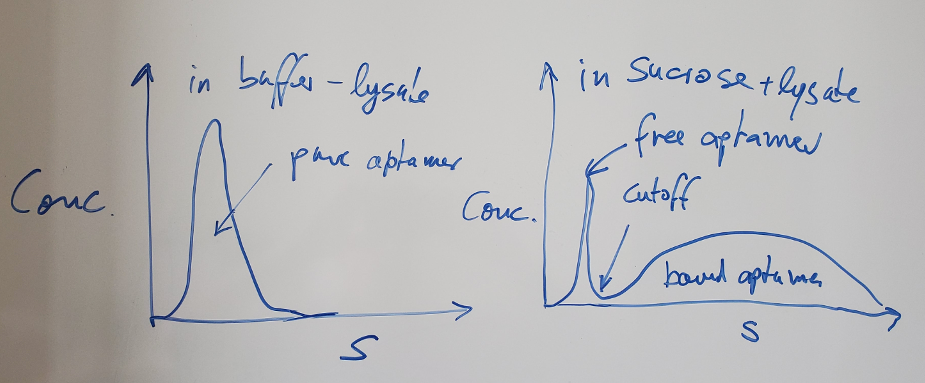 in buffer - lysate
pure aptamer
Conc.
S
in Sucrose + lysate
free aptamer
cutoff
Conc.
bound aptamer
S